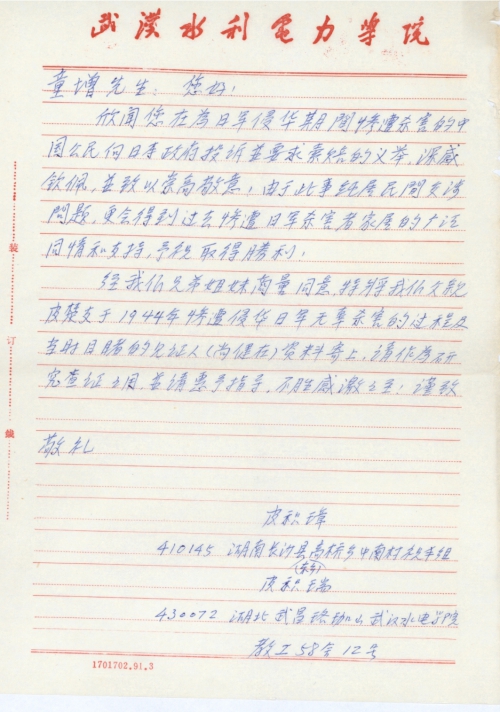 武漢水利電力學院
童增先生：您好！
欣闻您在为日军侵华期間惨遭杀害的中
国公民向日本政府投訴並要求索赔的义举，深感
钦佩，並致以崇高敬意，由于此事纯属民間交涉
問题，更会得到过去惨遭日军杀害者家属的广泛
同情和支持，予祝取得勝利！
经我们兄弟姐妹商量同意，特将我们父親
皮楚 于1944年惨遭侵华日军无辜杀害的过程及
当时目睹的见证人（尚健在）资料寄上，请作为研
究查证之用，並请惠予指导，不胜感激之至！谨致
敬礼
皮积
410145 湖南长沙县高桥乡中南村 组
皮积瑞
430072 湖北武昌珞珈山武汉水电学院
教工58舍12号
装
订
线
1701702.91.3